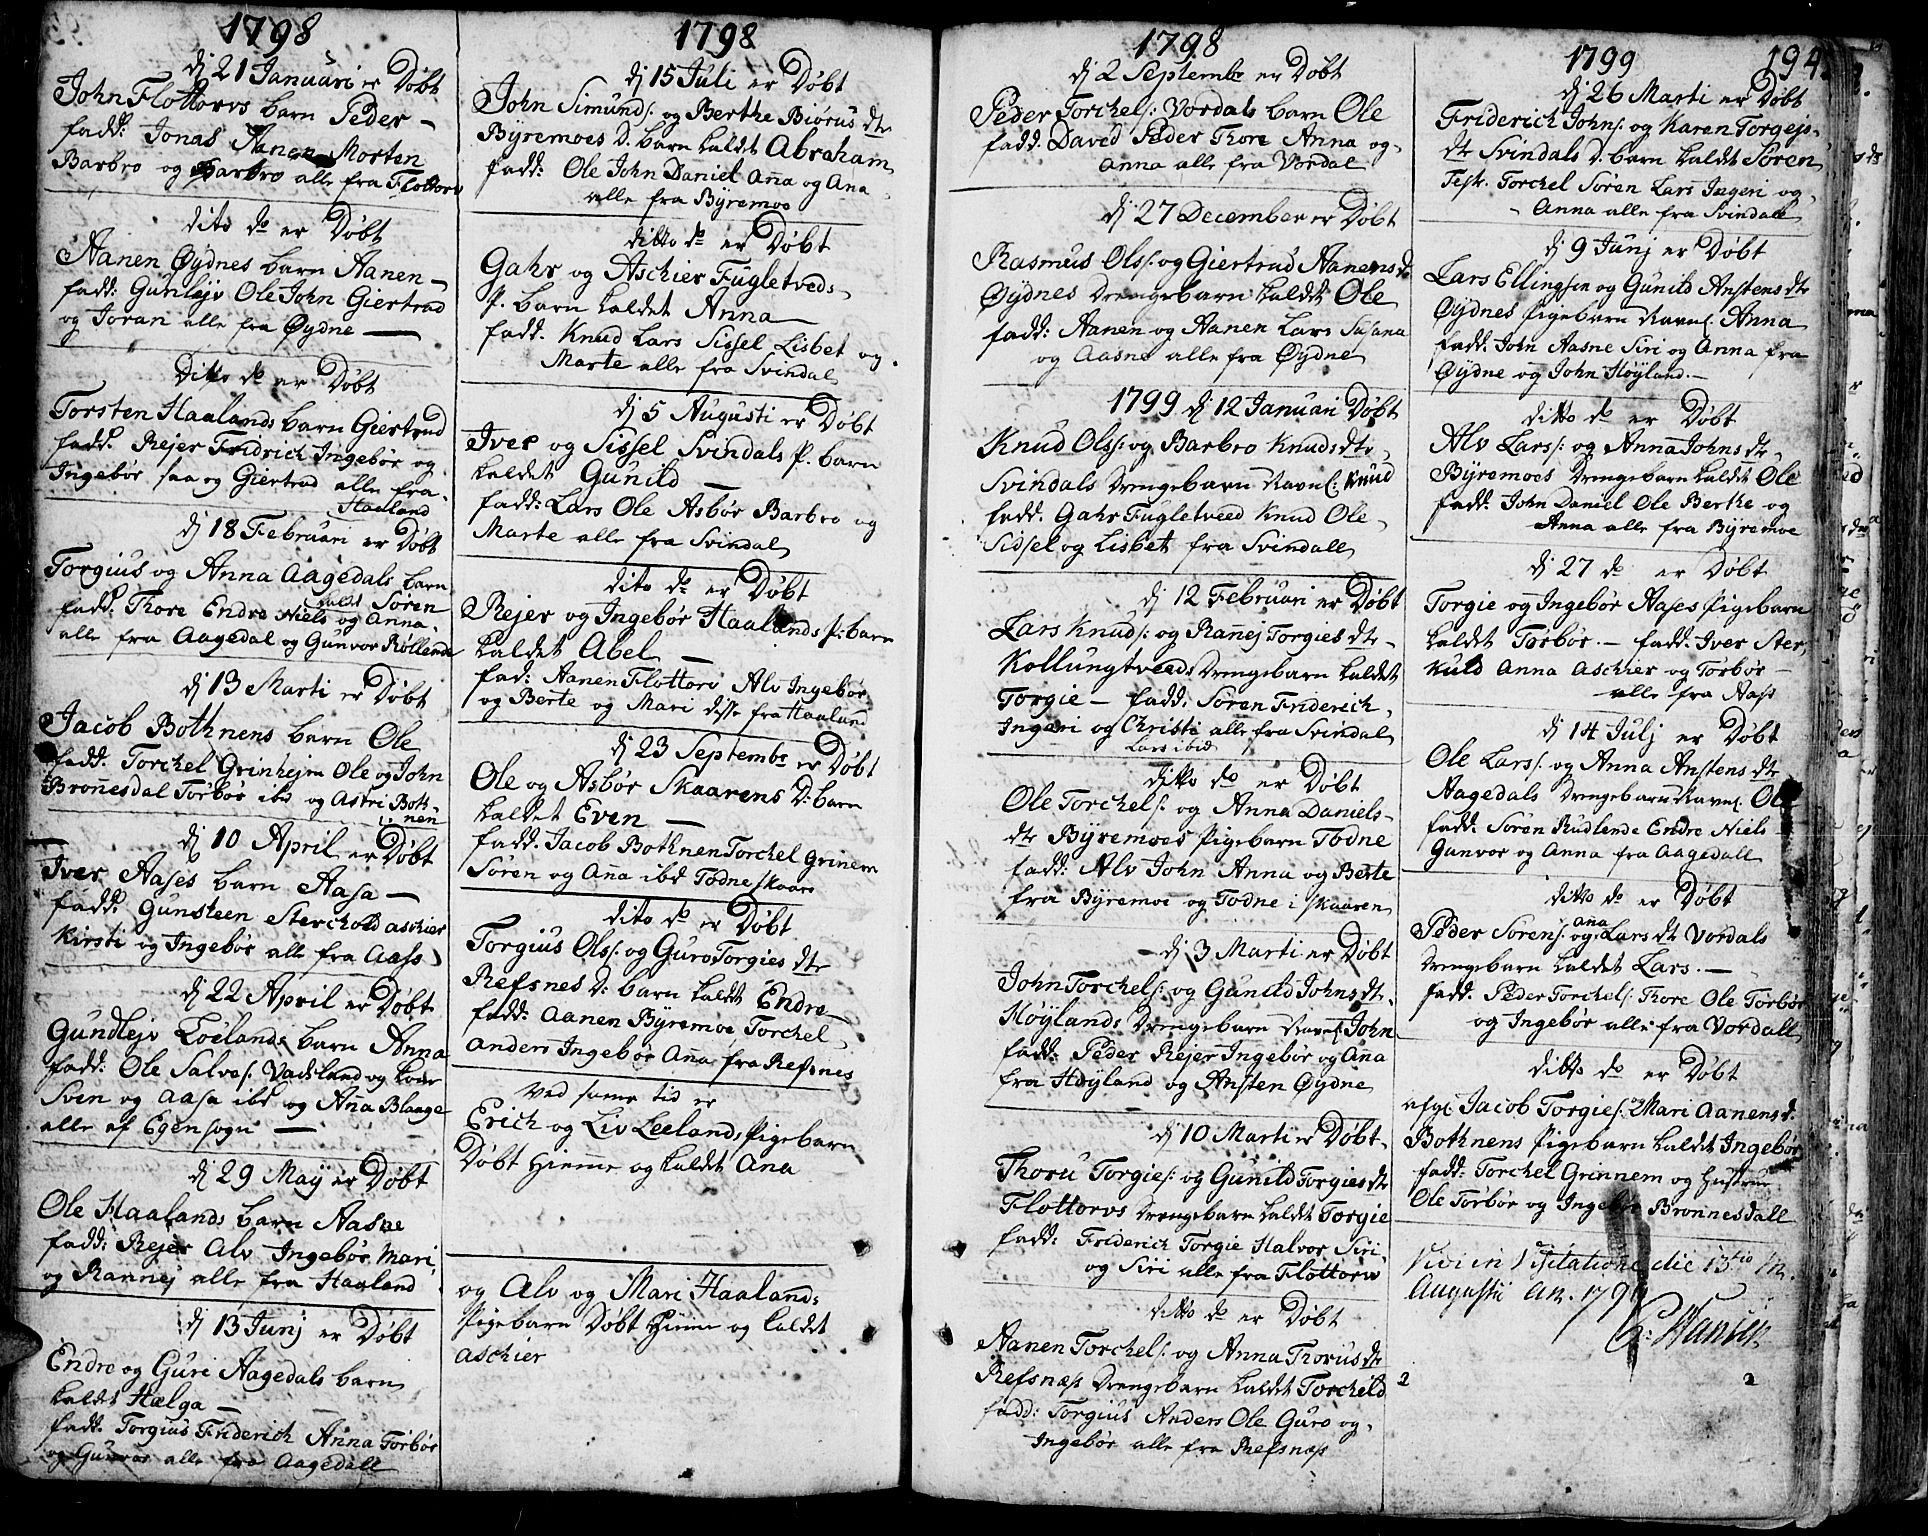 1798
dj 21 Januari er Døbt
John Flottorvs barn Peder —
fadd: Jonas Aanen Morten
Barbro og Barbro alle fra Flottorv
dito do er Døbt
Aanen Øydnes barn Aanen —
fadd: Gunlejv Ole John Giertrud
og Joran alle fra Øydne —
Ditto do er Døbt
Torsten Haalands barn Giertrud
fadd: Rejer Fridrich Ingebør og
Ingebør saa og Giertrud alle fra
Haaland
dj 18 Februari er Døbt
Torgius og Anna Aagedals barn
kaldet Søren
fadd: Thore Endre Niels og Anna
alle fra Aagedal og Gunvor Røllende
dj 13 Marti er Døbt
Jacob Bothnens barn Ole
fadd: Torchel Grinhejm Ole og John
Bronnesdal Torbør ibd og Astri Both-
nen
dj 10 April er Døbt
Iver Aases barn Aasa —
fadd: Gunsteen Sterchold Aschier
Kirsti og Ingebør alle fra Aass
dj 22 April er Døbt
Gundlejv Loelands barn Anna
fadd: Ole Salves: Vadsland og
Sven og Aasa ibd og Anna Blaage
alle af Egensogn —
dj 29 Maÿ er Døbt
Ole Haalands barn Aasae
fadd: Rejer Alv Ingebør Mari
og Rannej alle fra Haaland
dj 13 Junj er Døbt
Endre og Guri Aagedals barn
kaldet Hælga —
fadd. Torgius Friderich Anna Torbør
og Gunvor alle fra Aagedall
1798
dj 15 Juli er Døbt
John Simunds: og Berthe Biørus dtr
Bÿremoes D. barn kaldet Abraham
fadd: Ole John Daniel Anna og Ana
alle fra Bÿremoe
ditto do er Døbt
Gahr og Aschier Fugletveds
P. barn kaldet Anna
fadd. Knud Lars Sissel Lisbet og
Marte alle fra Svindal
dj 5 Augusti er Døbt
Iver og Sissel Svindals P. barn
kaldet Gunild —
fadd: Lars Ole Asbør Barbro og
Marte alle fra Svindal
dito do er Døbt
Rejer og Ingebør Haalands P: barn
kaldet Abel —
fad: Aanen Flottorv Alv Ingebør
og Berte og Mari disse fra Haaland
dj 23 Septembr er Døbt
Ole og Asbør Skaarens D: barn
kaldet Even —
fadd. Jacob Bothnen Torchel Grinem
Søren og Ana ibd Todne Skaare
dito do er Døbt
Torgius Ols: og Guro Torgies dtr
Refsnes D: barn kaldet Endre
fadd: Aanen Bÿremoe Torchel
Anders Ingebør Anna fra Refsnes
Ved same tid er
Erich og Liv Leelands Pigebarn
Døbt Hieme og kaldet Ana
og Alv og Mari Haalands
Pigebarn Døbt Hieme og kaldet
Aschier
1798
dj 2 Septembr er Døbt
Peder Torchels: Vordals barn Ole
fadd. David Peder Thore Anna og
Anna alle fra Vordal
dj 27 December er Døbt
Rasmus Ols: og Giertrud Aanens dr
Øydnes Drengebarn kaldet Ole
fadd: Aanen og Aanen Lars Susana
og Aasne alle fra Øydne
1799 dj 12 Januari Døbt
Knud Ols: og Barbro Knuds dtr
Svindals Drengebarn Navnl: Knud
fadd. Gahr Fugletveed Knud Ole
Sidsel og Lisbet fra Svindall
dj 12 Februari er Døbt
Lars Knuds: og Rannej Torgies dtr
Kollungtveeds Drengebarn kaldet
Torgie — fadd: Søren Friderich
Ingeri og Christi alle fra Svindal
Lars ibid
ditto do er Døbt
Ole Torchels: og Anna Daniels-
dtr Bÿremoes Pigebarn Todne
fadd: Alv John Anna og Berte
fra Bÿremoe og Todne i Skaaren
dj 3 Marti er Døbt
John Torchels: og Gunild Johns dtr
Høylands Drengebarn Navnl John
fadd: Peder Rejer Ingebør og Ana
fra Høyland og Ansten Øydne
dj 10 Marti er Døbt
Thoru Torgies: og Gunild Torgies dtr
Flottorvs Drengebarn kaldet Torgie
fadd: Friderich Torgie Halvor Siri
og Siri alle fra Flottorv
ditto do er Døbt
Aanen Torchels: og Anna Thorus dtr
Refsnæs Drengebarn kaldet Torcheld
fadd: Torgius Anders Ole Guro og
Ingebør alle fra Refsnæs
1799
194
dj 26 Marti er Døbt
Friderich Johns: og Karen Torgejs
dtr Svindals D. barn kaldet Søren
Test. Torchel Søren Lars Ingeri og
Anna alle fra Svindall
dj 9 Junj er Døbt
Lars Ellingsen og Gunild Anstens dtr
Øydnes Pigebarn Navnl. Anna
fadd. John Aasne Siri og Anna fra
Øydne og John Høyland.—
ditto do er Døbt
Alv Lars: og Anna Johns dtr
Bÿremoes Drengebarn kaldet Ole
fadd. John Daniel Ole Berthe og
Anna alle fra Bÿremoe
dj 27 do er Døbt
Torgie og Ingebør Aases Pigebarn
kaldet Torbør. — fadd. Iver Ster
kuld Anna Aschier og Torbør
alle fra Aass
dj 14 Julj er Døbt
Ole Lars: og Anna Anstens dtr
Aagedals Drengebarn Navnl. Ole
fadd. Søren Rudlende Endre Niels
Gunvor og Anna fra Aagedall
ditto do er Døbt
ana
Peder Sørens: og Lars dt Vordals
Drengebarn kaldet Lars. —
fadd. Peder Torchels: Thore Ole Torbør
og Ingebør alle fra Vordall
ditto do er Døbt
Jacob Torgies: og Mari Aanens d.
Bothnens Pigebarn kaldet Ingebør
fadd: Torchel Grinnem og Hustrue
Ole Torbør og Ingebør Bronnesdall
Vidi in Visitatione die 13tio m.
Augusti an. 1799
2
2